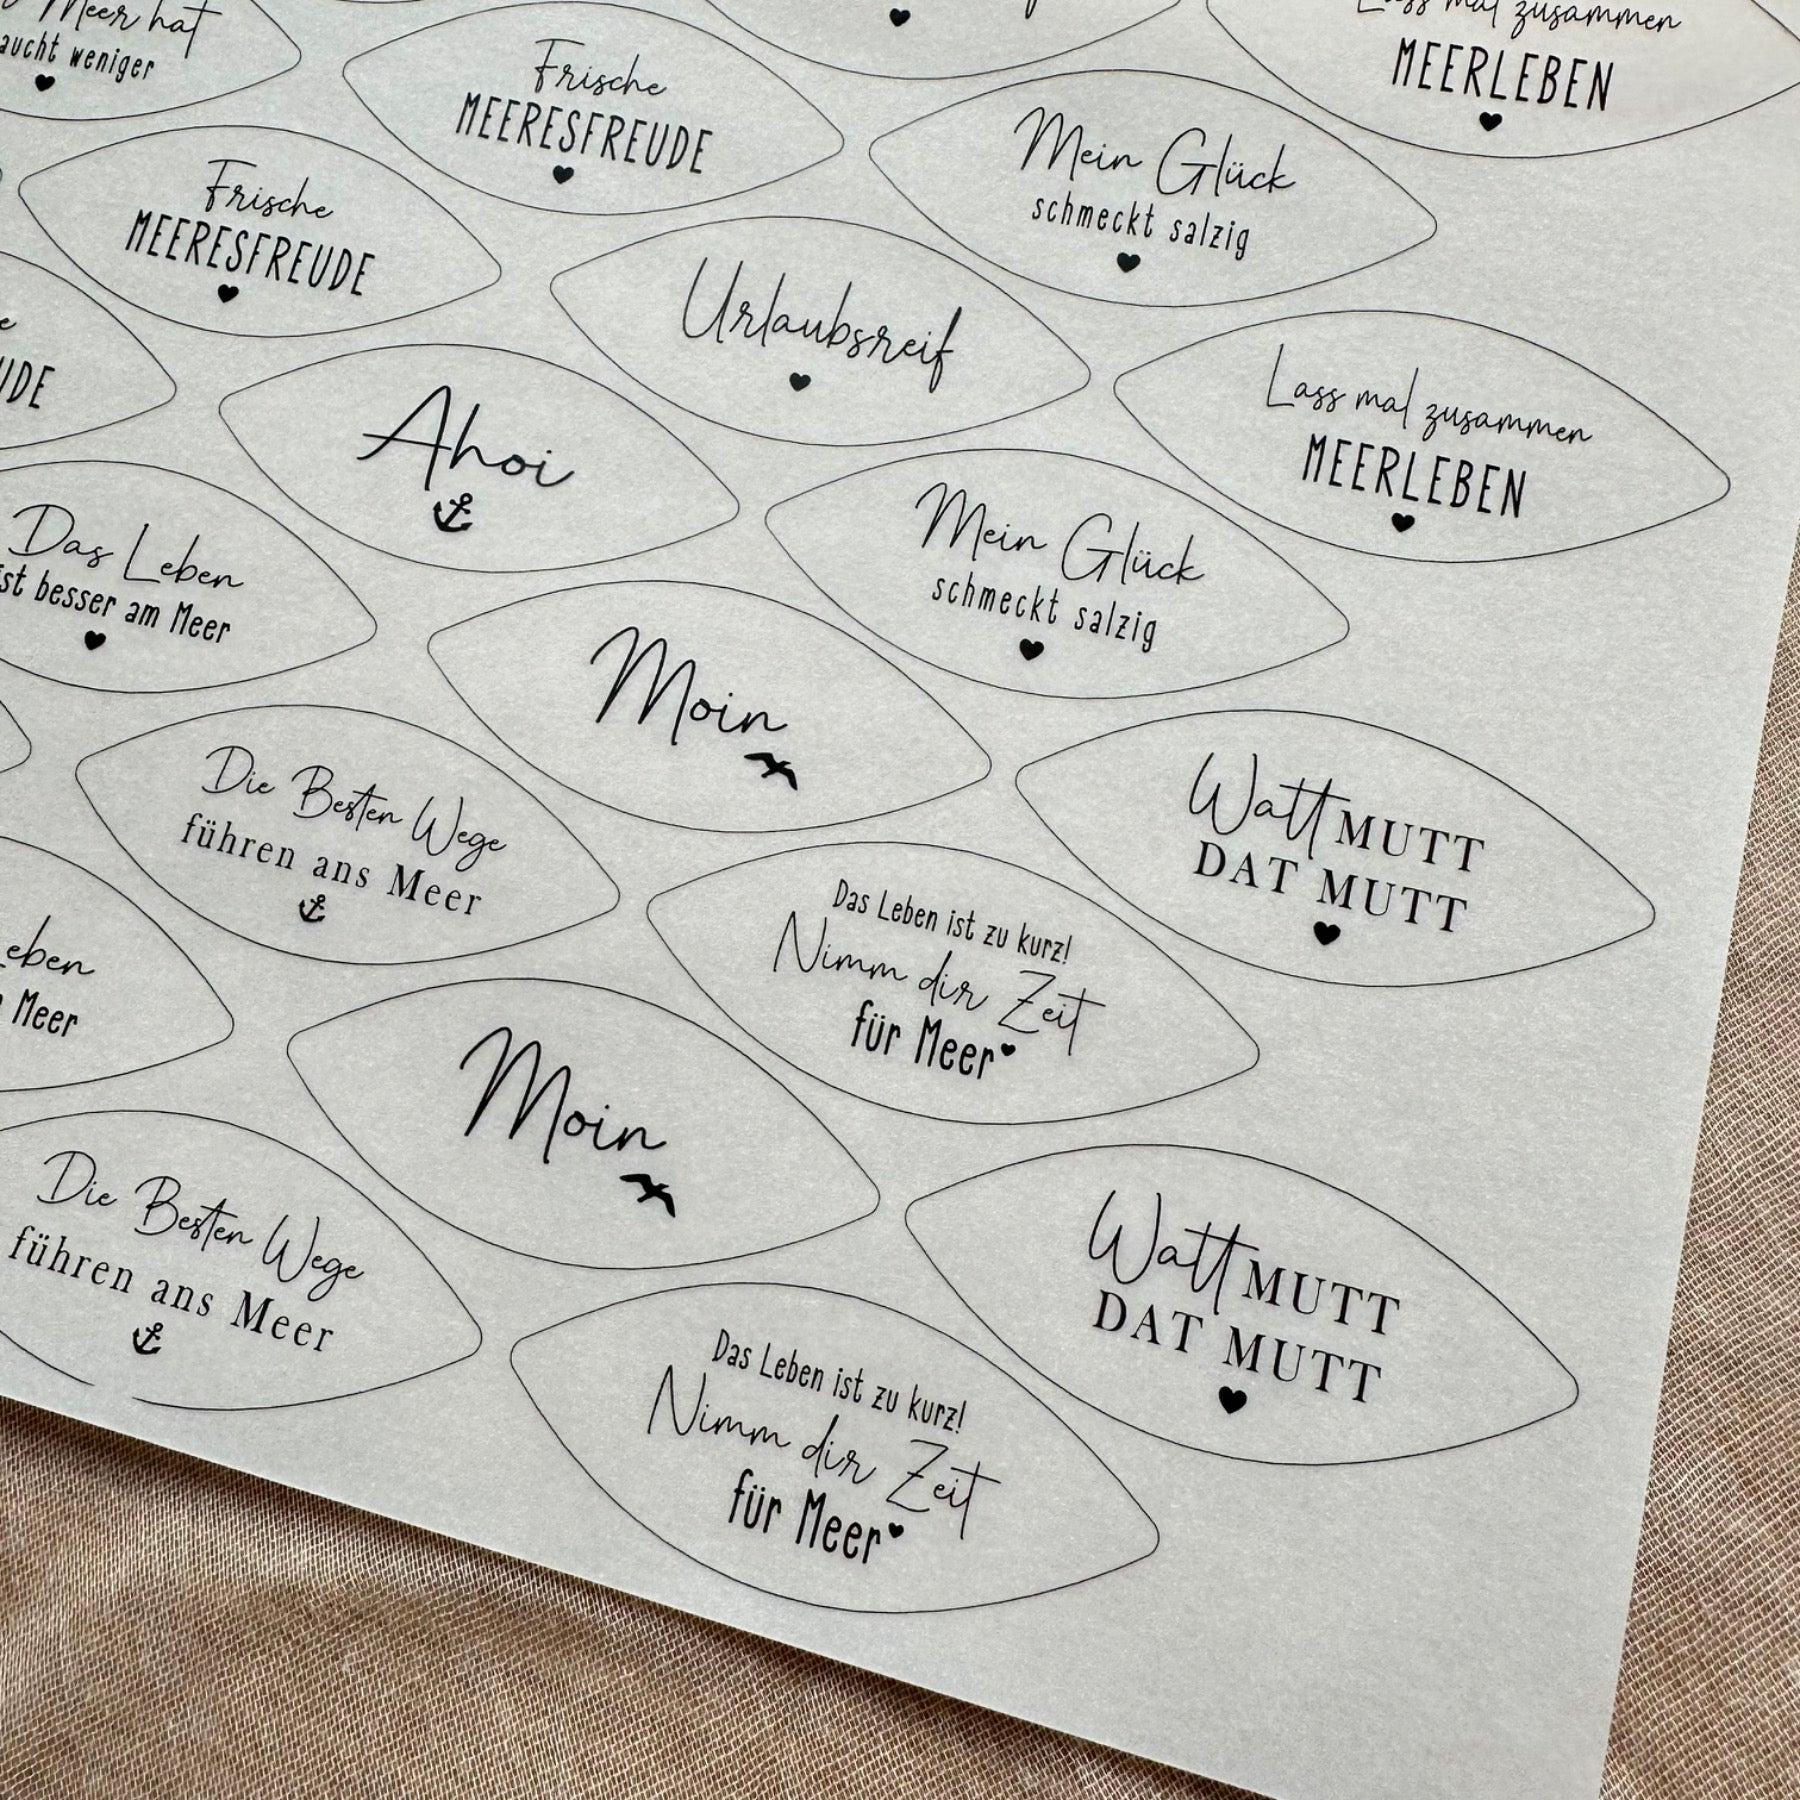 Meer hat
weniger
Frische
MEERESFREUDE
Lass mal zusammen
MEERLEBEN
Mein Glück
schmeckt salzig
Frische
MEERESFREUDE
Urlaubsreif
Lass mal zusammen
MEERLEBEN
Ahoi
Mein Glück
schmeckt salzig
Das Leben
ist besser am Meer
Moin
Watt MUTT
DAT MUTT
Die Besten Wege
führen ans Meer
Das Leben ist zu kurz!
Nimm dir Zeit
für Meer
Meer
Moin
Watt MUTT
DAT MUTT
Die Besten Wege
führen ans Meer
Das Leben ist zu kurz!
Nimm dir Zeit
für Meer